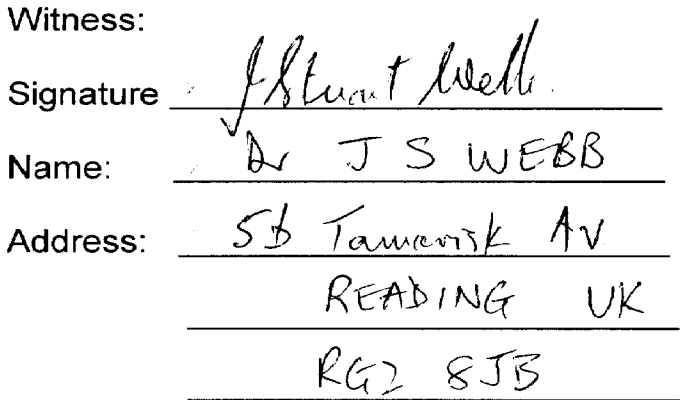 Witness:
Signature J Stuart Webb.
Name: Dr J S WEBB
Address: 5b Tamarisk Av
READING UK
RG2 8JB